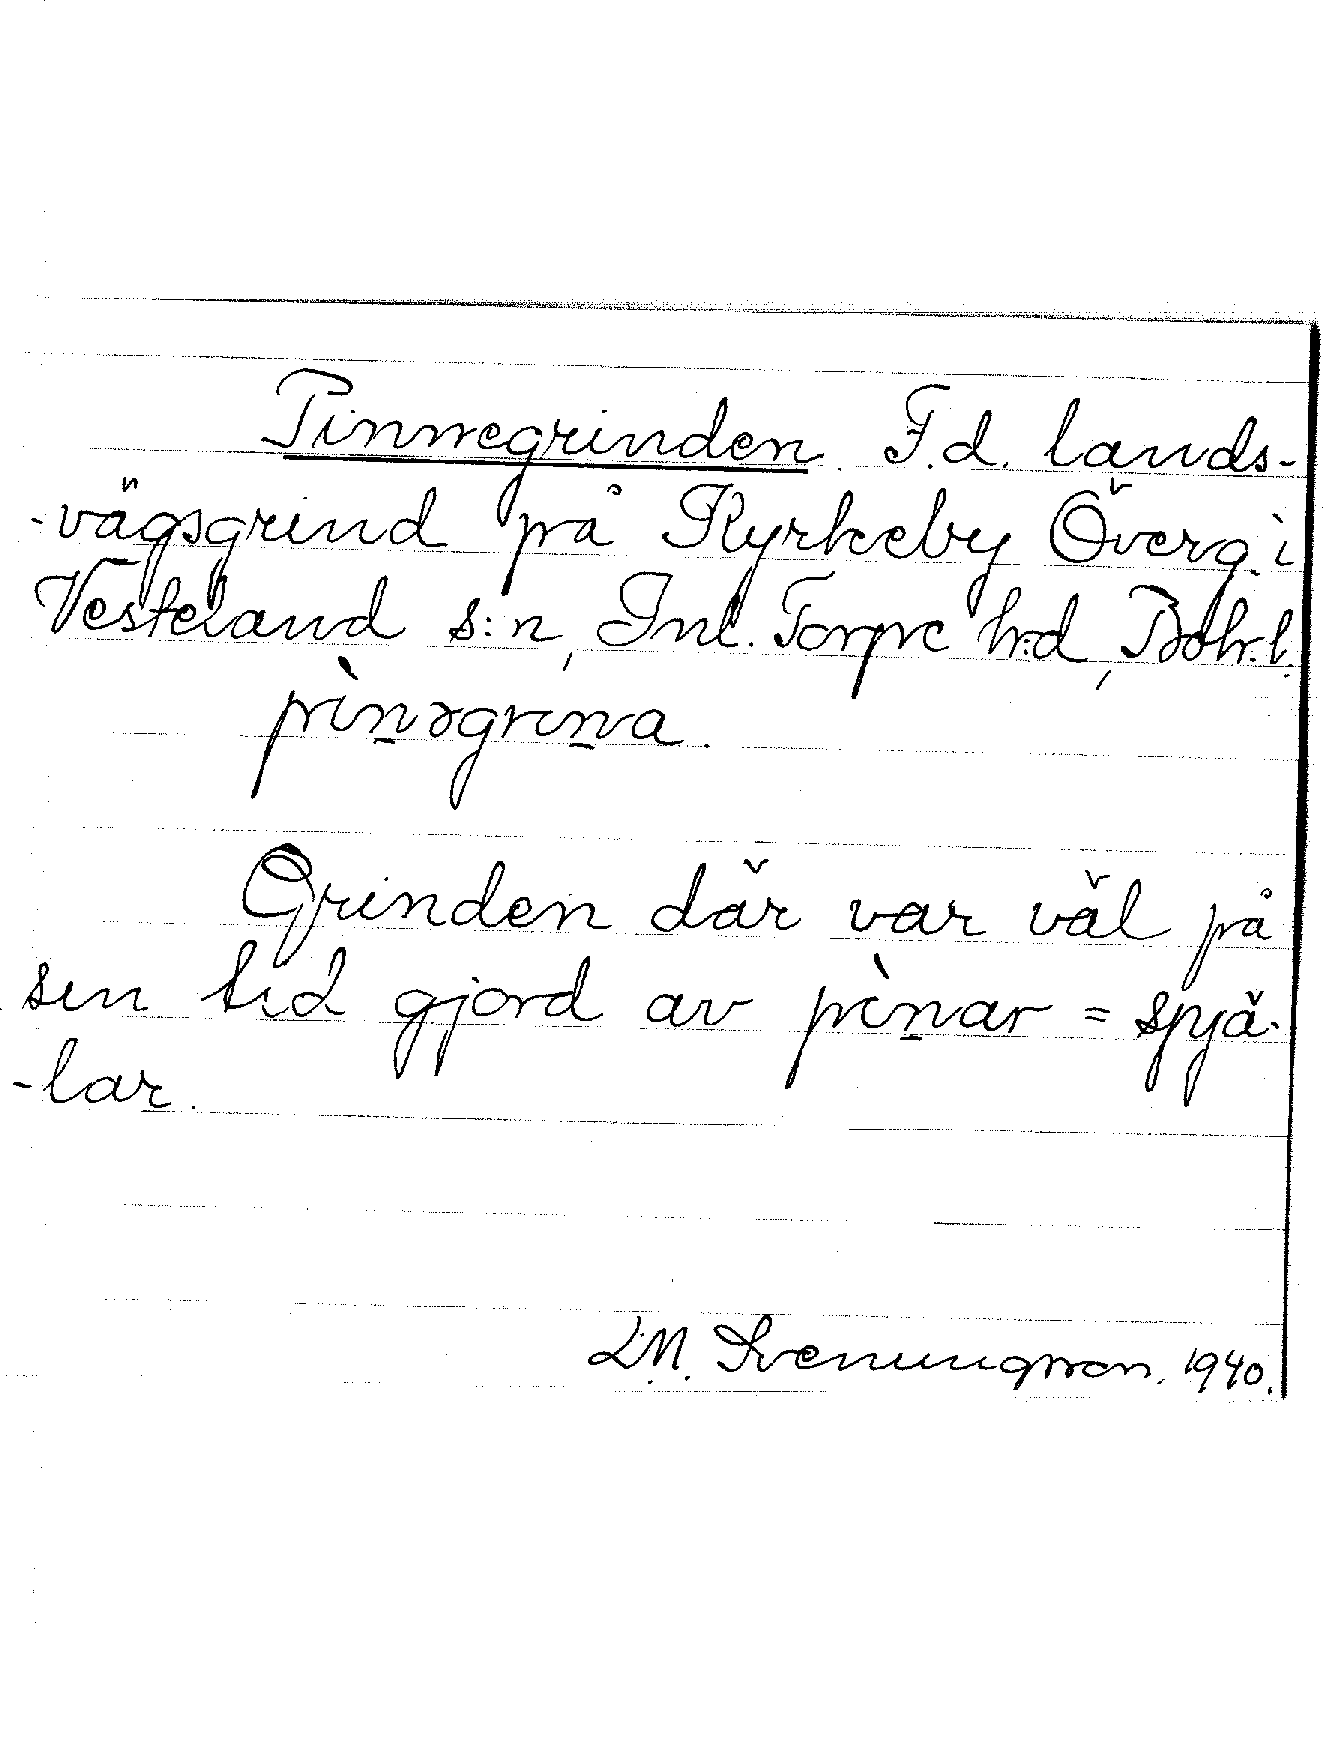 Pinnegrinden. F.d. lands-
-vägsgrind på Kyrkeby Överg. i
Vesteland s:n, Inl. Torpe h:d, Boh.l.
pìn̠əgrin̠a.
Grinden där var väl på
sin tid gjord av pìn̠ar = spjä-
-lar.
L.M. Svenungsson. 1940.